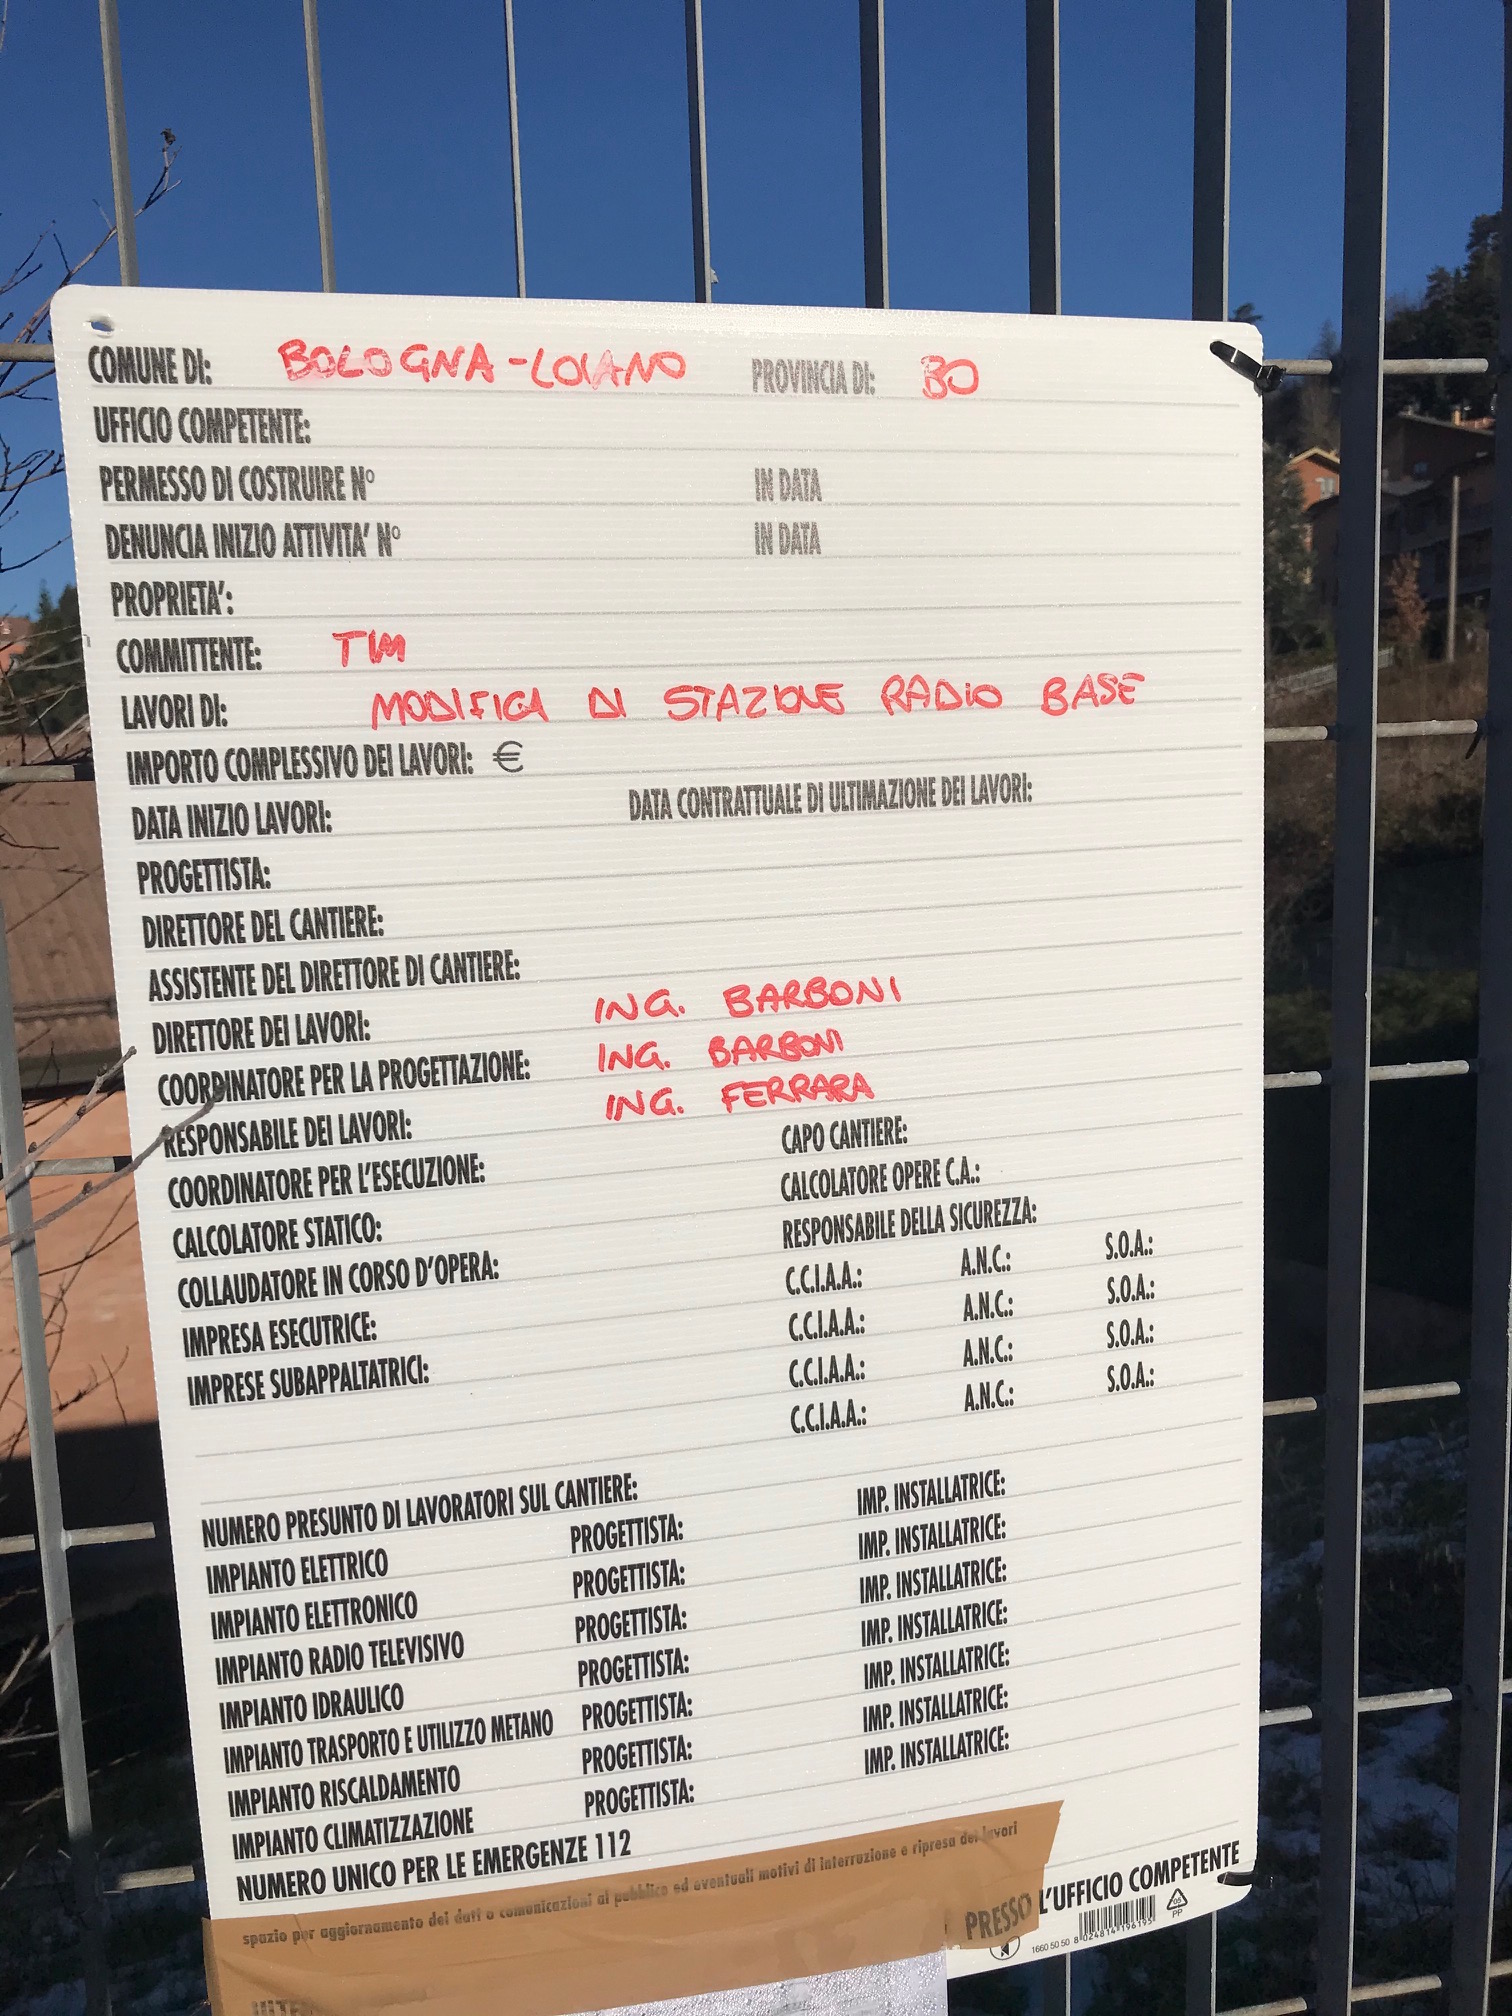 COMUNE DI: BOLOGNA-LOIANO PROVINCIA DI: BO
UFFICIO COMPETENTE:
PERMESSO DI COSTRUIRE N° IN DATA
DENUNCIA INIZIO ATTIVITA' N° IN DATA
PROPRIETA':
COMMITTENTE: TIM
LAVORI DI: MODIFICA DI STAZIONE RADIO BASE
IMPORTO COMPLESSIVO DEI LAVORI: €
DATA INIZIO LAVORI: DATA CONTRATTUALE DI ULTIMAZIONE DEI LAVORI:
PROGETTISTA:
DIRETTORE DEL CANTIERE:
ASSISTENTE DEL DIRETTORE DI CANTIERE:
DIRETTORE DEI LAVORI: ING. BARBONI
COORDINATORE PER LA PROGETTAZIONE: ING. BARBONI
RESPONSABILE DEI LAVORI: ING. FERRARA
COORDINATORE PER L'ESECUZIONE: CAPO CANTIERE:
CALCOLATORE STATICO: CALCOLATORE OPERE C.A.:
COLLAUDATORE IN CORSO D'OPERA: RESPONSABILE DELLA SICUREZZA:
IMPRESA ESECUTRICE: C.C.I.A.A.: A.N.C.: S.O.A.:
IMPRESE SUBAPPALTATRICI: C.C.I.A.A.: A.N.C.: S.O.A.:
C.C.I.A.A.: A.N.C.: S.O.A.:
C.C.I.A.A.: A.N.C.: S.O.A.:
NUMERO PRESUNTO DI LAVORATORI SUL CANTIERE:
IMPIANTO ELETTRICO PROGETTISTA: IMP. INSTALLATRICE:
IMPIANTO ELETTRONICO PROGETTISTA: IMP. INSTALLATRICE:
IMPIANTO RADIO TELEVISIVO PROGETTISTA: IMP. INSTALLATRICE:
IMPIANTO IDRAULICO PROGETTISTA: IMP. INSTALLATRICE:
IMPIANTO TRASPORTO E UTILIZZO METANO PROGETTISTA: IMP. INSTALLATRICE:
IMPIANTO RISCALDAMENTO PROGETTISTA: IMP. INSTALLATRICE:
IMPIANTO CLIMATIZZAZIONE PROGETTISTA: IMP. INSTALLATRICE:
NUMERO UNICO PER LE EMERGENZE 112
spazio per aggiornamento dei dati o comunicazioni al pubblico ed eventuali motivi di interruzione e ripresa dei lavori
PRESSO L'UFFICIO COMPETENTE
1660 50 50 8 024814 196195
05
PP